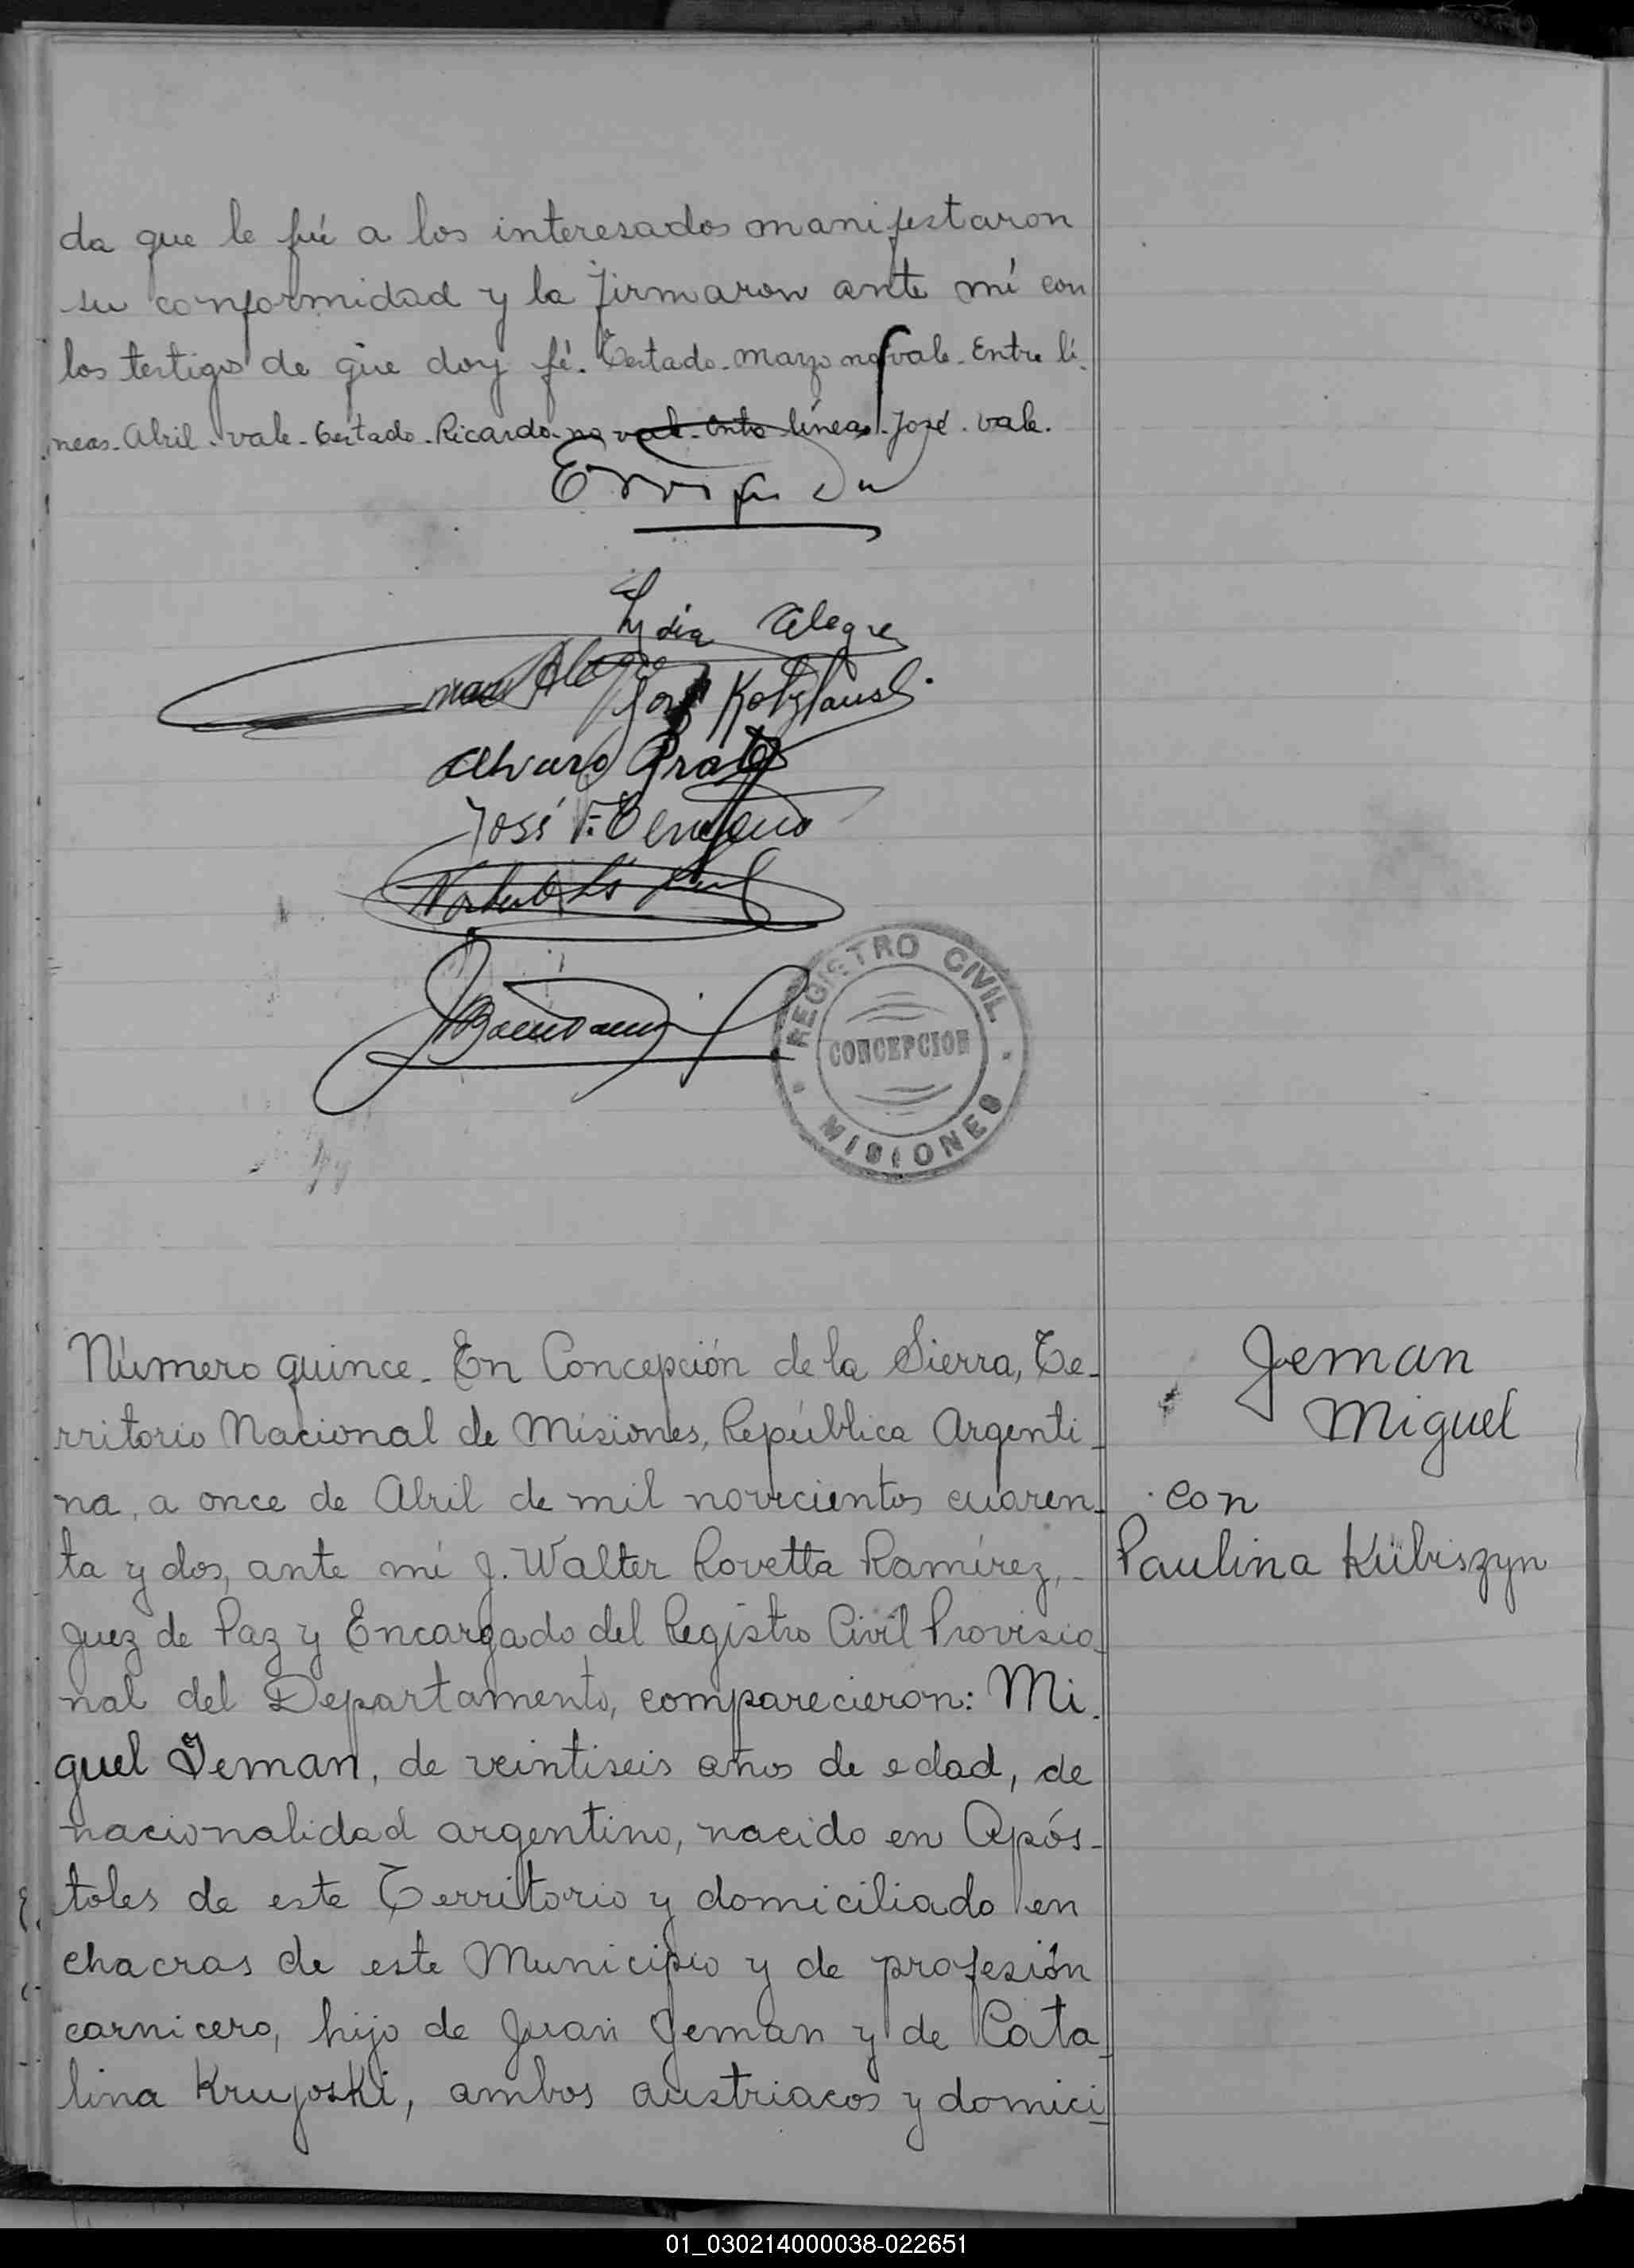 da que le fué a los interesados manifestaron
su conformidad y la firmaron ante mí con
los testigos de que doy fé. Testado-marzo no vale-Entre lí-
neas-Abril-vale-Testado-Ricardo-no vale-Entre líneas-José-vale.
Lydia Alegre
Alegre
José
Alvaro Prates
José F.
REGISTRO CIVIL
CONCEPCION
MISIONES
Número quince-En Concepción de la Sierra, Te-
rritorio Nacional de Misiones, República Argenti-
na, a once de Abril de mil novecientos cuaren-
ta y dos, ante mí J. Walter Rovetta Ramírez,-
Juez de Paz y Encargado del Registro Civil Provisio-
nal del Departamento, comparecieron: Mi-
guel Jeman, de veintiseis años de edad, de
nacionalidad argentino, nacido en Após-
toles de este Territorio y domiciliado en
chacras de este Municipio y de profesión
carnicero, hijo de Juan Jeman y de Cata-
lina Krujoski, ambos austriacos y domici-
Jeman
Miguel
con
Paulina Kübiszyn
01_030214000038-022651